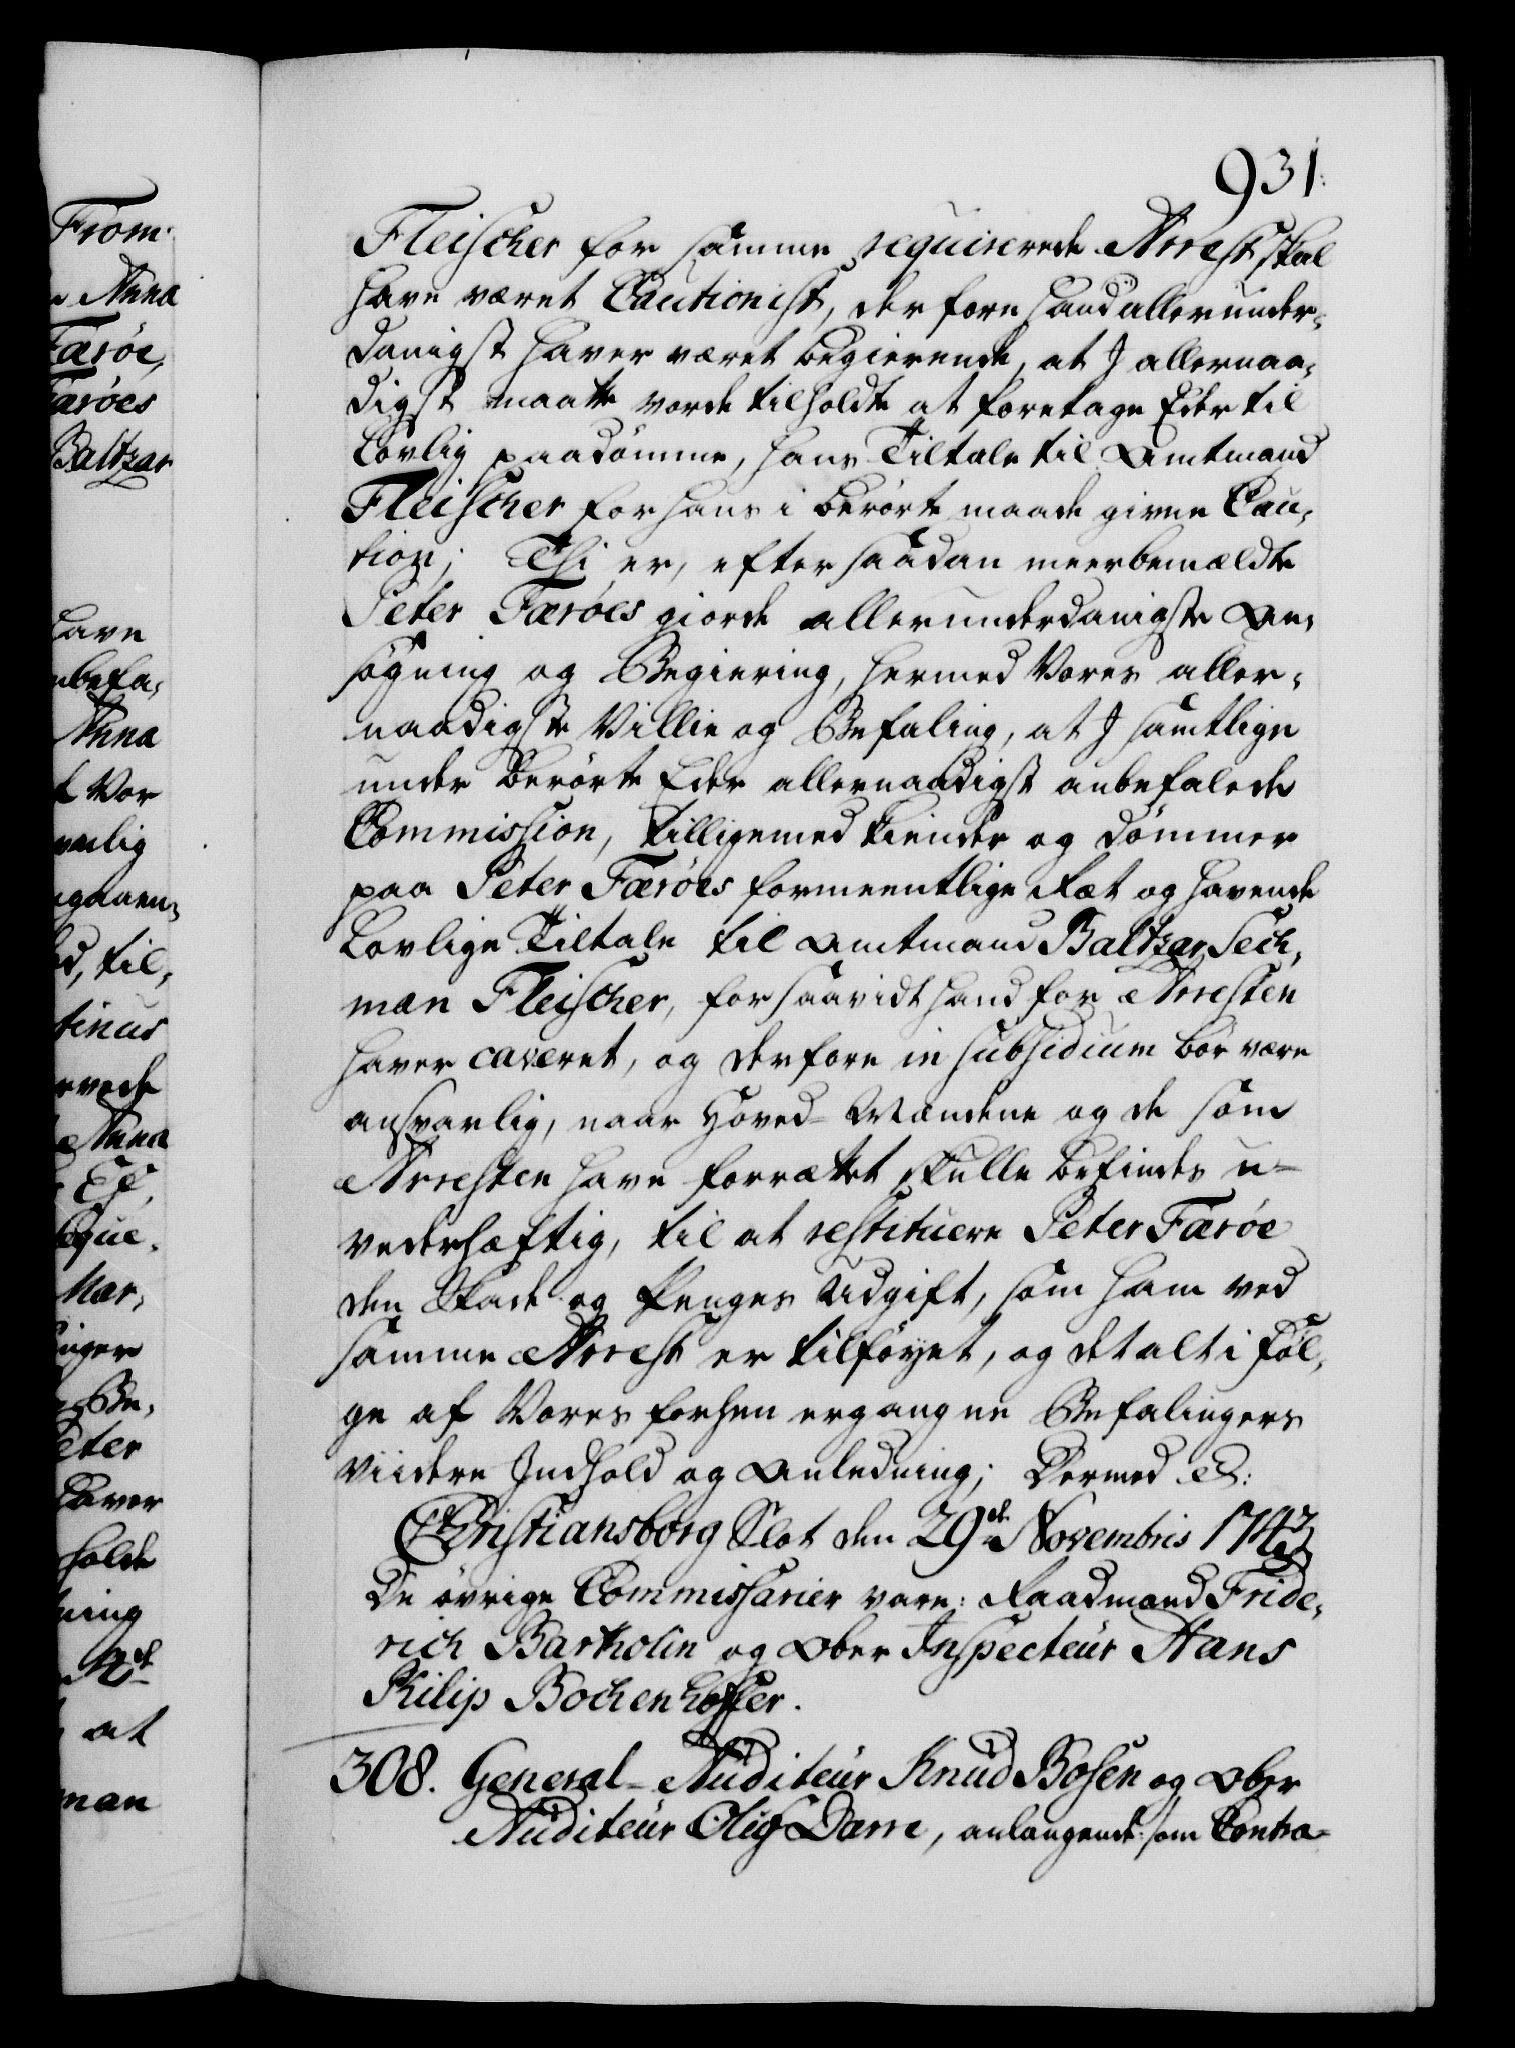 931.
From-
Fleischer for samme reqvirerede Arrest skal
have været Cautionist, derfore hand allerunder-
Anna
danigst haver været begierende, at J allernaa-
Færöe,
digst maatte vorde tilholdte at foretage Eder til
Færöes
Lovlig paadömme, hans Tiltale til Amtmand
Baltzar
Fleischer for hans i berörte maade givne Cau-
tion; Thi er, efter saadan meerbemældte
Peter Færöes giorde allerunderdanigste An-
have
søgning og Begiering, hermed Vores aller-
nbefa-
naadigste Villie og Befaling, at J samtlige
Anna
under berörte Eder allernaadigst anbefalede
Vor
Commission, tilligemed kiender og dömmer
paa Peter Færöes formeentlige Ræt og havende
Lovlige Tiltale til Amtmand Baltzar Sech-
til-
man Fleischer, forsaavidt hand for Arresten
tinus
haver caveret, og derfore in subsidium bör være
ansvarlig, naar Hoved-Mændene og de som
Anna
Arresten have forrættet skulle befindes u-
vederhæftig, til at restituere Peter Færöe
den Skade og Penges Udgift, som ham ved
Mar-
samme Arrest er tilföyet, og det alt i Föl-
ge af Vores forhen ergangne Befalingers
Peter
viidere Indhold og Anledning; Dermed &:
haver
Christiansborg Slot den 29de Novembris 1743
holde
De övrige Commissarier vare: Raadmand Fride-
ning
rich Bartholin og Ober Inspecteur Hans
Philip Bochenhoffer.
at
308. General-Auditeur Knud Bosen og Ober
man
Auditeur Oluf Darre, anlangende: som Contra-